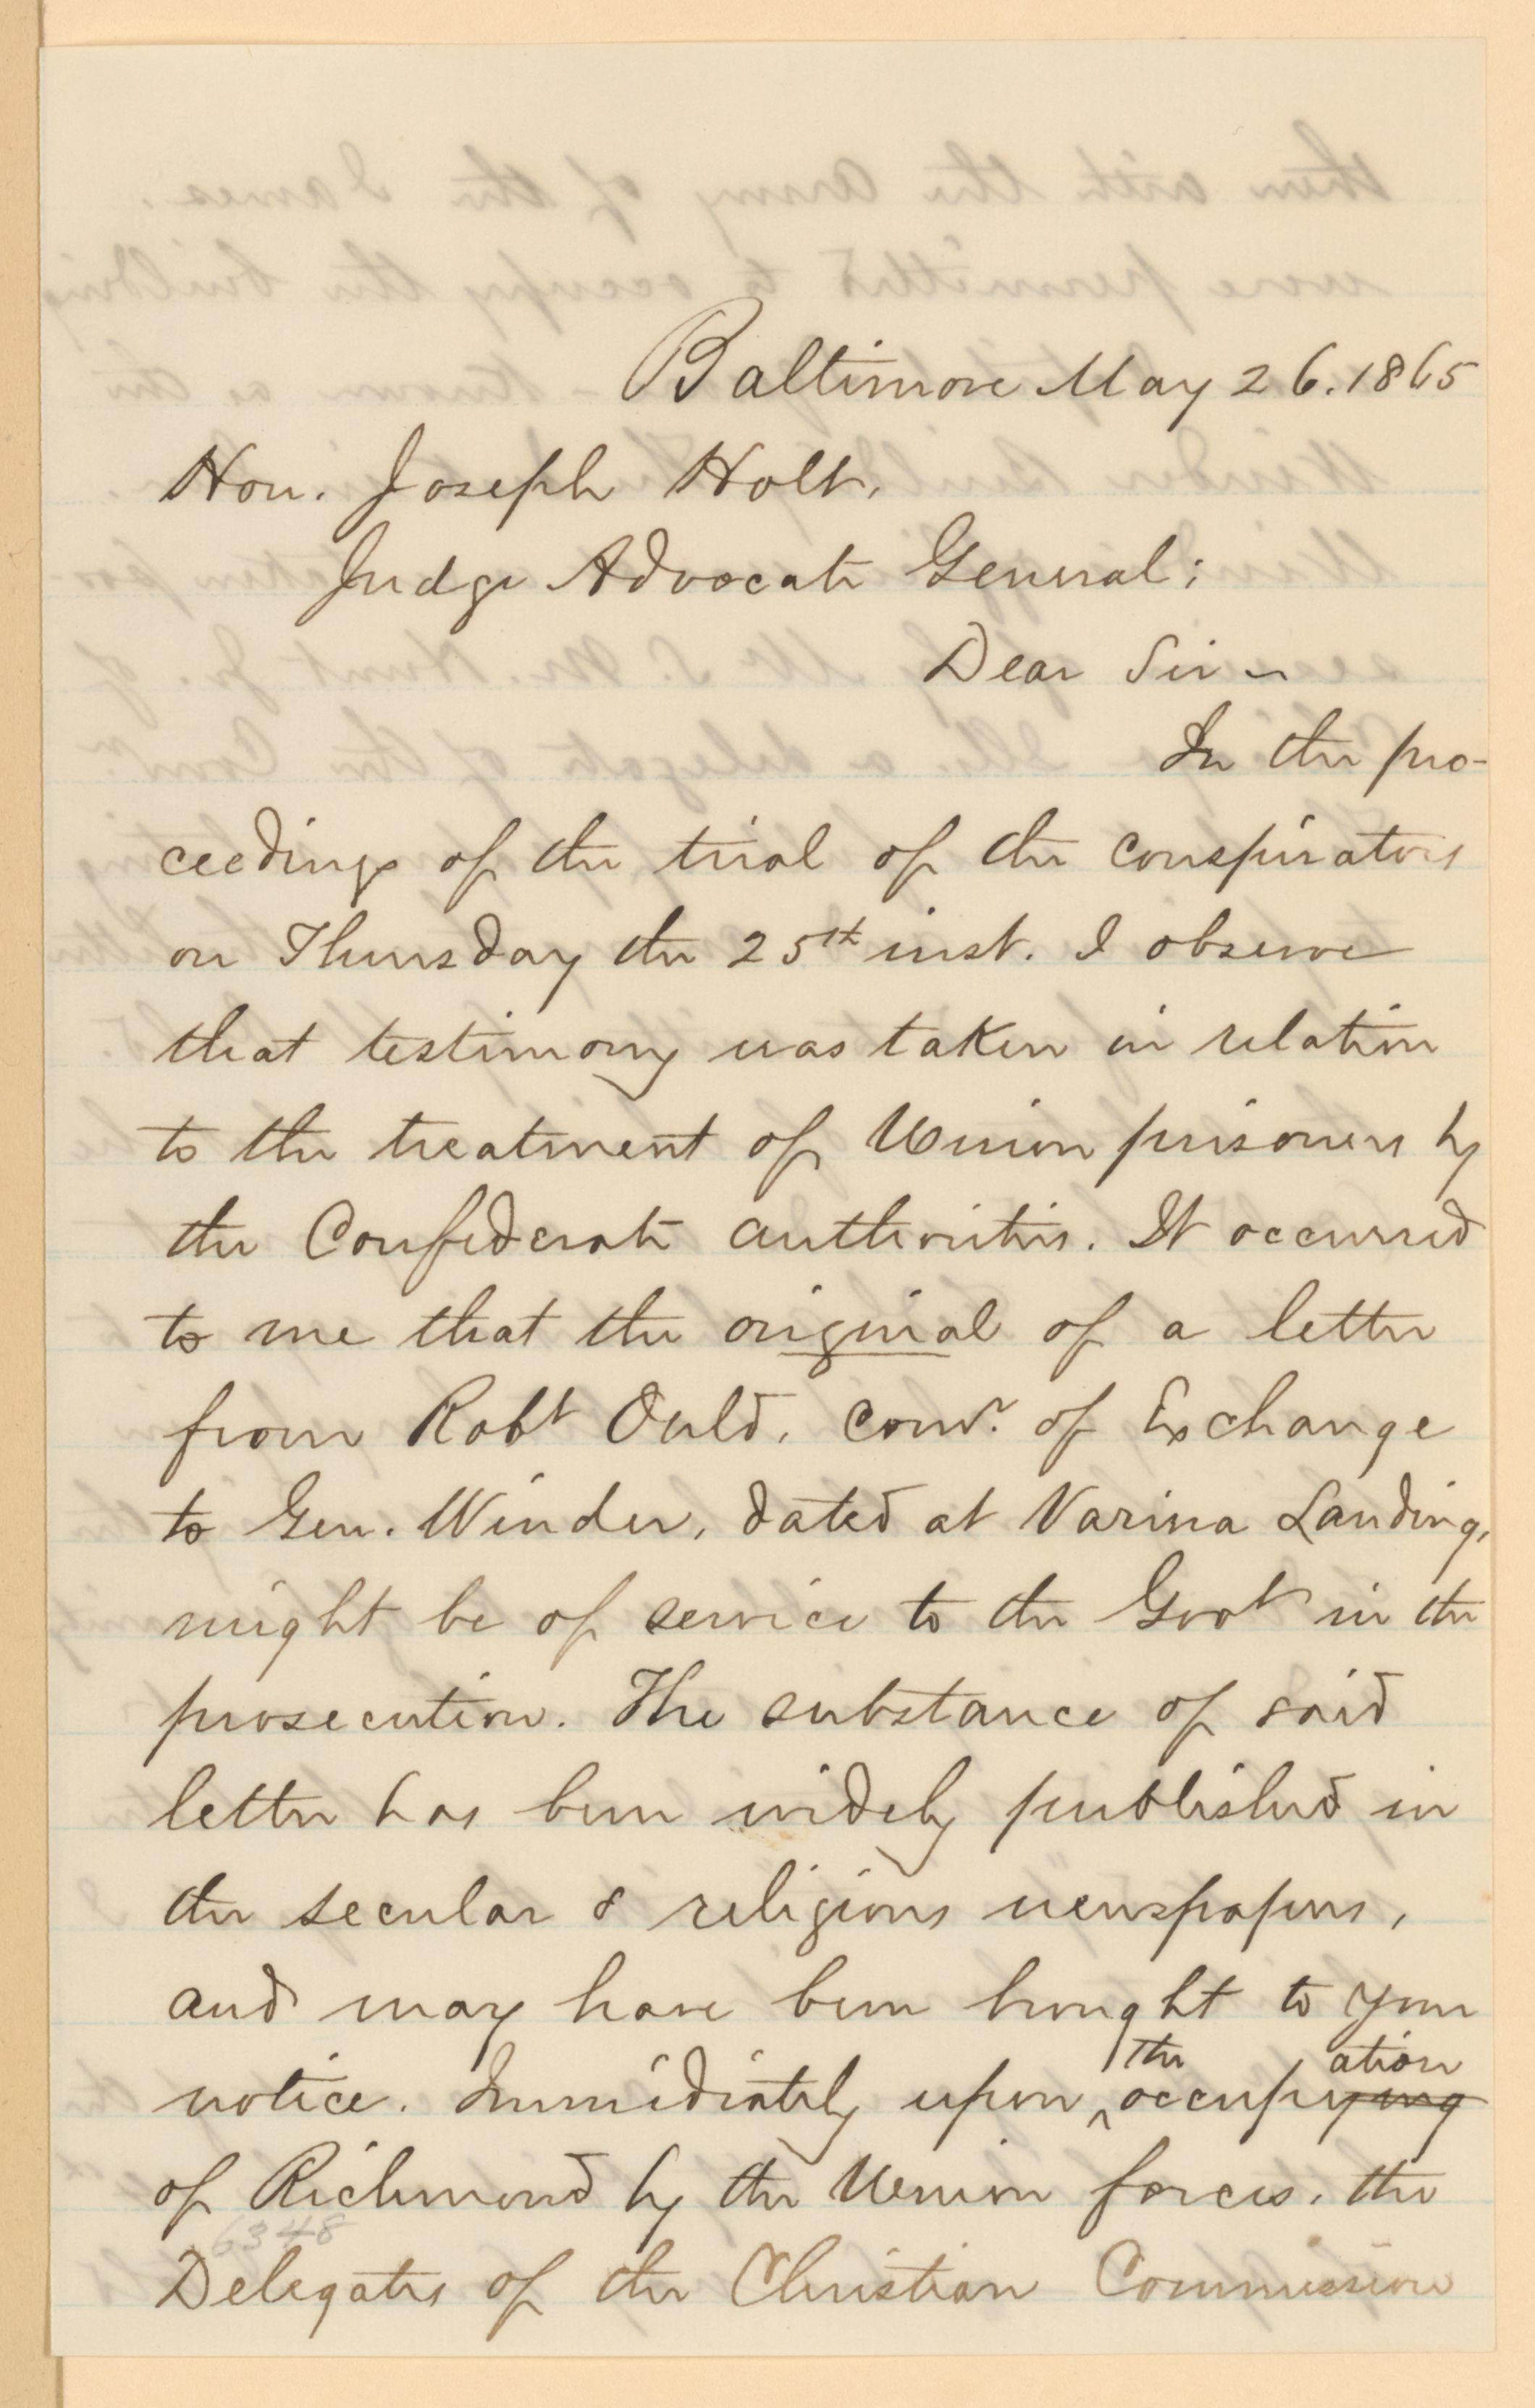 Baltimore May 26. 1865
Hon. Joseph Holt,
Judge Advocate General;
Dear Sir ~
In the pro-
ceedings of the trial of the conspirators
on Thursday the 25th inst. I observe
that testimony was taken in relation
to the treatment of Union prisoners by
the Confederate authorities. It occurred
to me that the original of a letter
from Robt Ould, Comr. of Exchange
to Gen. Winder, dated at Varina Landing,
might be of service to the Govt in the
prosecution. The substance of said
letter has been widely published in
the secular & religious newspapers,
and may have been brought to your
the ation
notice. Immediately upon ^ occupying
of Richmond by the Union forces, the
6348
Delegates of the Christian Commission